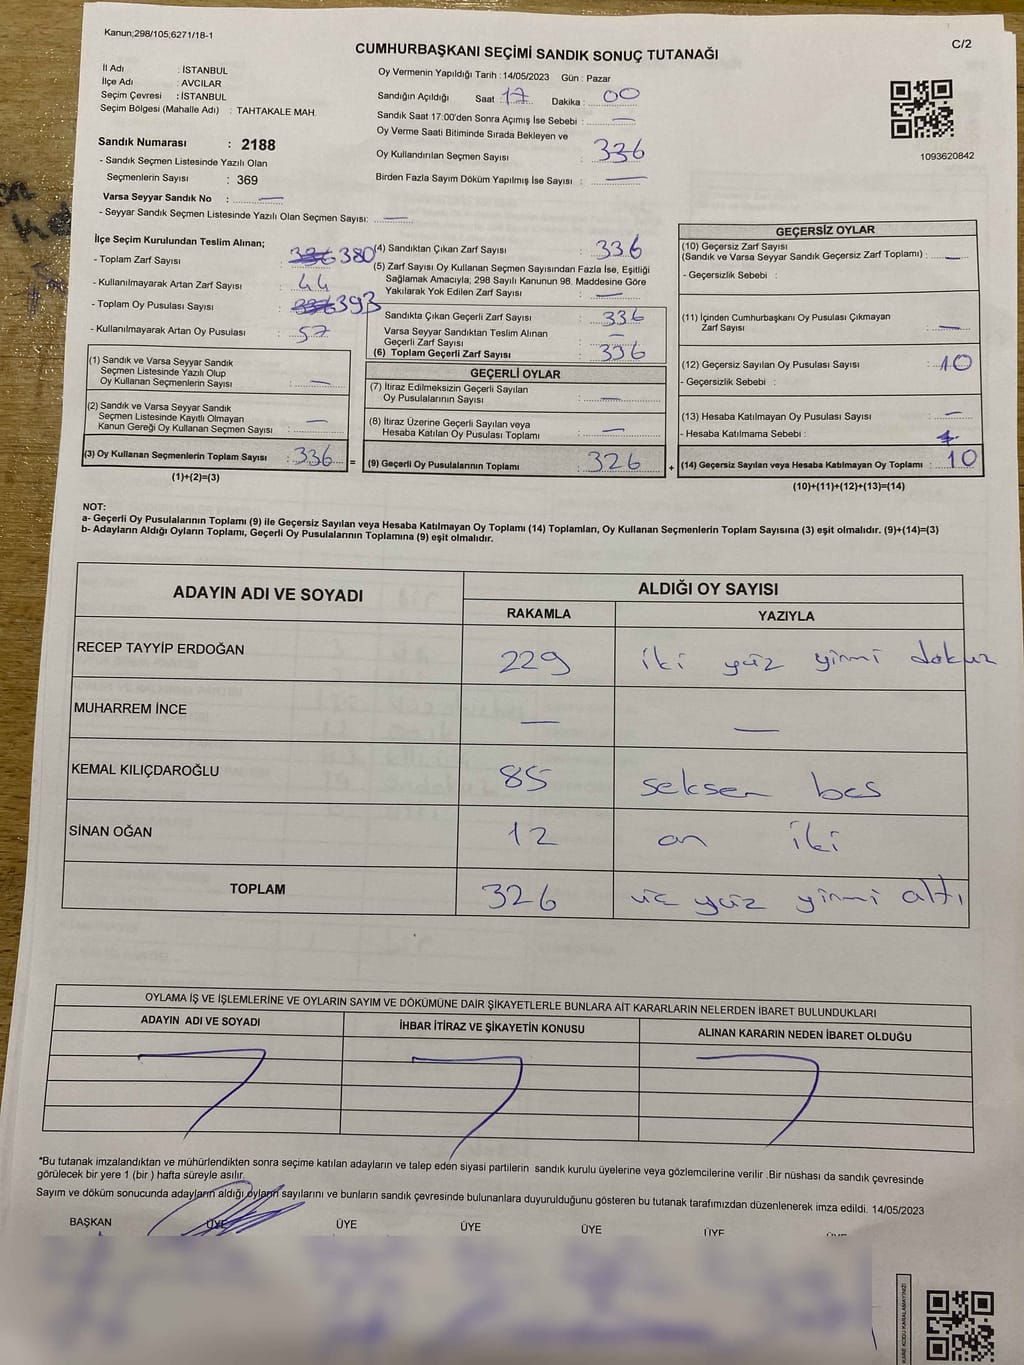 Kanun;298/105;6271/18-1
C/2
CUMHURBAŞKANI SEÇİMİ SANDIK SONUÇ TUTANAĞI
İl Adı : İSTANBUL
İlçe Adı : AVCILAR
Seçim Çevresi : İSTANBUL
Seçim Bölgesi (Mahalle Adı) : TAHTAKALE MAH.
Oy Vermenin Yapıldığı Tarih : 14/05/2023 Gün : Pazar
Sandığın Açıldığı Saat : 17 Dakika : 00
Sandık Saat 17:00'den Sonra Açımış İse Sebebi : —
Oy Verme Saati Bitiminde Sırada Bekleyen ve
Oy Kullandırılan Seçmen Sayısı : 336
Birden Fazla Sayım Döküm Yapılmış İse Sayısı : —
1093620842
Sandık Numarası : 2188
- Sandık Seçmen Listesinde Yazılı Olan
Seçmenlerin Sayısı : 369
Varsa Seyyar Sandık No : —
- Seyyar Sandık Seçmen Listesinde Yazılı Olan Seçmen Sayısı: —
İlçe Seçim Kurulundan Teslim Alınan;
- Toplam Zarf Sayısı : 336 380
- Kullanılmayarak Artan Zarf Sayısı : 44
- Toplam Oy Pusulası Sayısı : 336 393
- Kullanılmayarak Artan Oy Pusulası : 57
(1) Sandık ve Varsa Seyyar Sandık
Seçmen Listesinde Yazılı Olup
Oy Kullanan Seçmenlerin Sayısı : —
(2) Sandık ve Varsa Seyyar Sandık
Seçmen Listesinde Kayıtlı Olmayan
Kanun Gereği Oy Kullanan Seçmen Sayısı : —
(3) Oy Kullanan Seçmenlerin Toplam Sayısı : 336 =
(1)+(2)=(3)
(4) Sandıktan Çıkan Zarf Sayısı : 336
(5) Zarf Sayısı Oy Kullanan Seçmen Sayısından Fazla İse, Eşitliği
Sağlamak Amacıyla; 298 Sayılı Kanunun 98. Maddesine Göre
Yakılarak Yok Edilen Zarf Sayısı : —
Sandıkta Çıkan Geçerli Zarf Sayısı : 336
Varsa Seyyar Sandıktan Teslim Alınan
Geçerli Zarf Sayısı : —
(6) Toplam Geçerli Zarf Sayısı : 336
GEÇERLİ OYLAR
(7) İtiraz Edilmeksizin Geçerli Sayılan
Oy Pusulalarının Sayısı : —
(8) İtiraz Üzerine Geçerli Sayılan veya
Hesaba Katılan Oy Pusulası Toplamı : —
(9) Geçerli Oy Pusulalarının Toplamı : 326 +
GEÇERSİZ OYLAR
(10) Geçersiz Zarf Sayısı
(Sandık ve Varsa Seyyar Sandık Geçersiz Zarf Toplamı) : —
- Geçersizlik Sebebi :
(11) İçinden Cumhurbaşkanı Oy Pusulası Çıkmayan
Zarf Sayısı : —
(12) Geçersiz Sayılan Oy Pusulası Sayısı : 10
- Geçersizlik Sebebi :
(13) Hesaba Katılmayan Oy Pusulası Sayısı : —
- Hesaba Katılmama Sebebi :
(14) Geçersiz Sayılan veya Hesaba Katılmayan Oy Toplamı : 10
(10)+(11)+(12)+(13)=(14)
NOT:
a- Geçerli Oy Pusulalarının Toplamı (9) ile Geçersiz Sayılan veya Hesaba Katılmayan Oy Toplamı (14) Toplamları, Oy Kullanan Seçmenlerin Toplam Sayısına (3) eşit olmalıdır. (9)+(14)=(3)
b- Adayların Aldığı Oyların Toplamı, Geçerli Oy Pusulalarının Toplamına (9) eşit olmalıdır.
ADAYIN ADI VE SOYADI ALDIĞI OY SAYISI
RAKAMLA YAZIYLA
RECEP TAYYİP ERDOĞAN 229 iki yüz yirmi dokuz
MUHARREM İNCE — —
KEMAL KILIÇDAROĞLU 85 seksen beş
SİNAN OĞAN 12 on iki
TOPLAM 326 üç yüz yirmi altı
OYLAMA İŞ VE İŞLEMLERİNE VE OYLARIN SAYIM VE DÖKÜMÜNE DAİR ŞİKAYETLERLE BUNLARA AİT KARARLARIN NELERDEN İBARET BULUNDUKLARI
ADAYIN ADI VE SOYADI İHBAR İTİRAZ VE ŞİKAYETİN KONUSU ALINAN KARARIN NEDEN İBARET OLDUĞU
*Bu tutanak imzalandıktan ve mühürlendikten sonra seçime katılan adayların ve talep eden siyasi partilerin sandık kurulu üyelerine veya gözlemcilerine verilir .Bir nüshası da sandık çevresinde
görülecek bir yere 1 (bir ) hafta süreyle asılır.
Sayım ve döküm sonucunda adayların aldığı oyların sayılarını ve bunların sandık çevresinde bulunanlara duyurulduğunu gösteren bu tutanak tarafımızdan düzenlenerek imza edildi. 14/05/2023
BAŞKAN ÜYE ÜYE ÜYE ÜYE ÜYE